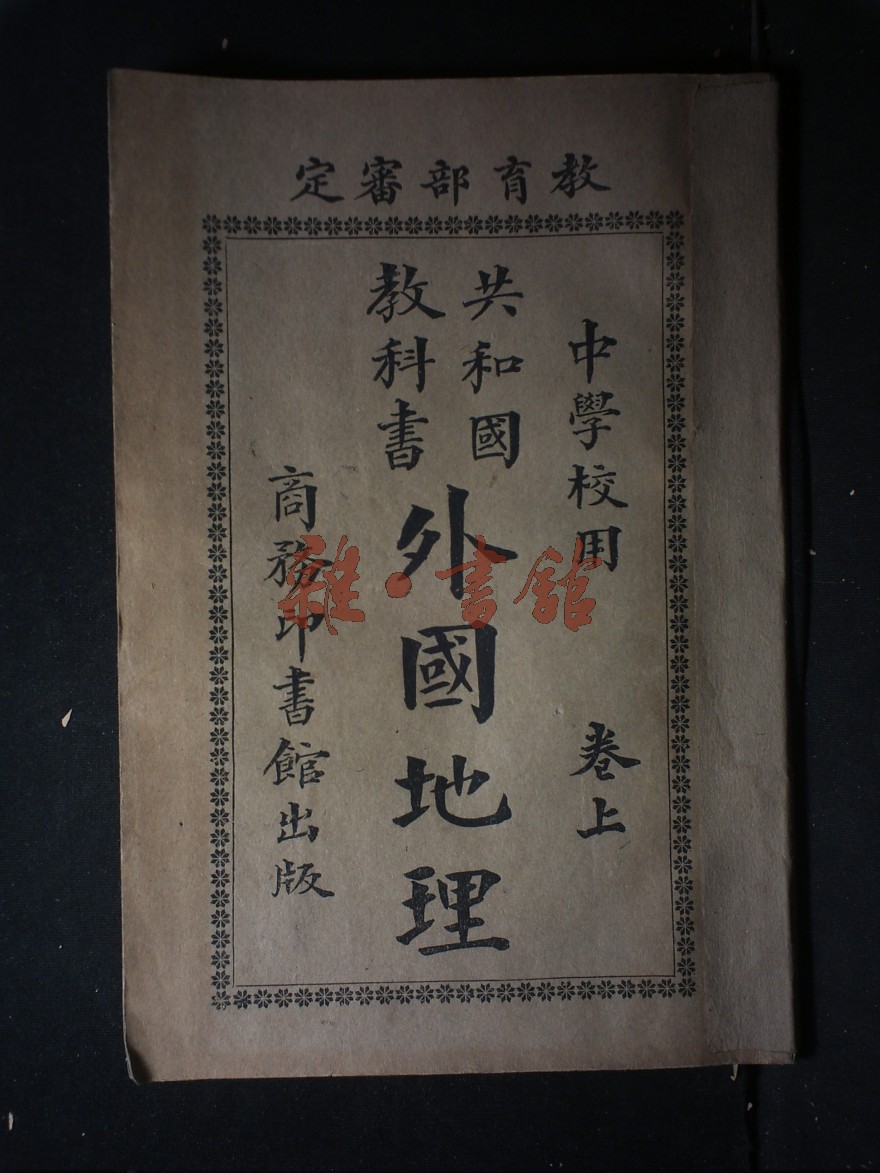 教育部審定
中學校用 卷上
共和國
教科書
外國地理
商務印書館出版
雜·書館